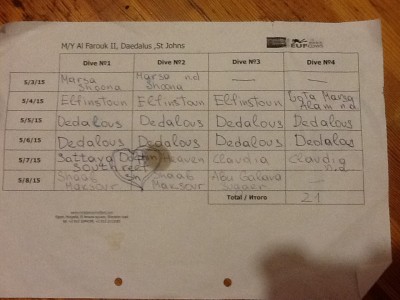 M/Y Al Farouk II, Daedalus ,St Johns
EUF
Dive №1 Dive №2 Dive №3 Dive №4
5/3/15 Marsa Shoona Marsa n.d Shoona — —
5/4/15 Elfinstoun Elfinstoun Elfinstoun Marsa Alam n.d
5/5/15 Dedalous Dedalous Dedalous Dedalous
5/6/15 Dedalous Dedalous Dedalous Dedalous
5/7/15 Sattaya south reef Claudia Claudia n.d
5/8/15 Shaab Maksour Shaab Maksour Abu Galava —
Total / Итого 21